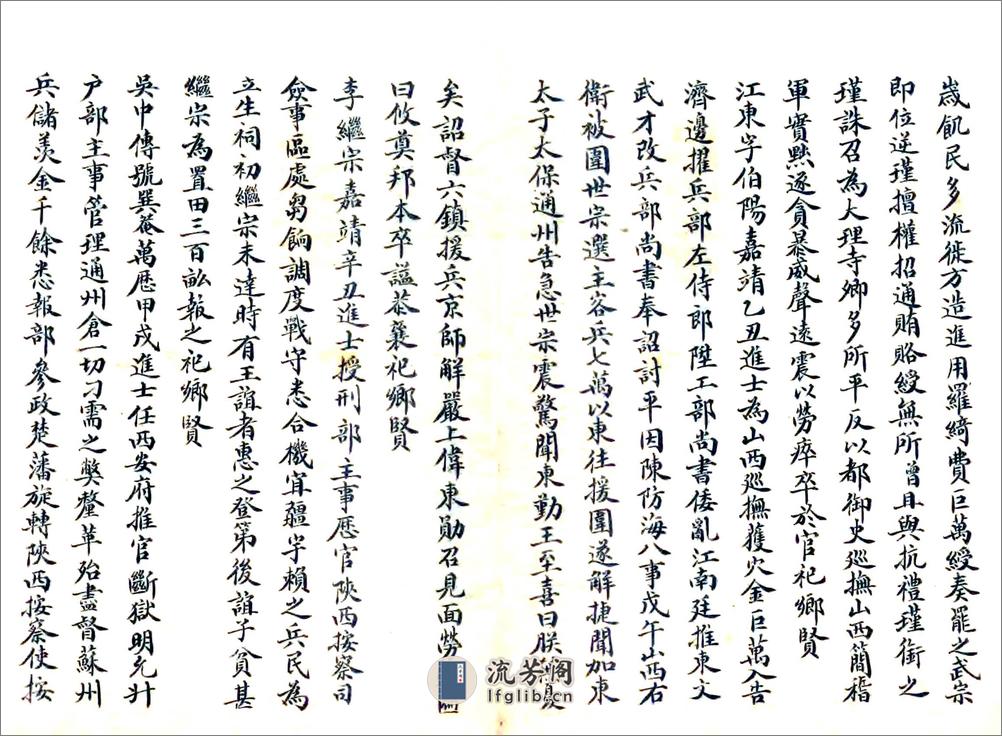 歲飢民多流徙方造進用羅綺費巨萬綬奏罷之武宗
即位逆瑾擅權招通賄賂綬無所曾且與抗禮瑾銜之
瑾誅召為大理寺卿多所平反以都御史廵撫山西簡稽
軍實黙逐貪暴威聲遠震以勞瘁卒於官祀鄉賢
江東字伯陽嘉靖乙丑進士為山西廵撫獲火金巨萬入告
濟邊擢兵部左侍郎陞工部尚書倭亂江南廷推東文
武才改兵部尚書奉詔討平因陳防海八事戊午山西右
衛被圍世宗選主客兵七萬以東往援圍遂解捷聞加東
太子太保通州告急世宗震驚聞東勤王至喜曰朕
矣詔督六鎮援兵京師解嚴上偉東勛召見面勞
曰攸奠邦本卒謚恭襄祀鄉賢
李繼宗嘉靖辛丑進士授刑部主事歷官陝西按察司
僉事區處芻餉調度戰守悉合機宜疆宇賴之兵民為
立生祠初繼宗未達時有王誼者惠之登第後誼子貧甚
繼宗為置田三百畝報之祀鄉賢
吳中傳號巽菴萬歷甲戌進士任西安府推官斷獄明允升
戶部主事管理通州倉一切刁需之獘釐革殆盡督蘇州
兵儲羨金千餘悉報部參政楚藩旋轉陝西按察使按
流芳阁
lfglib.cn